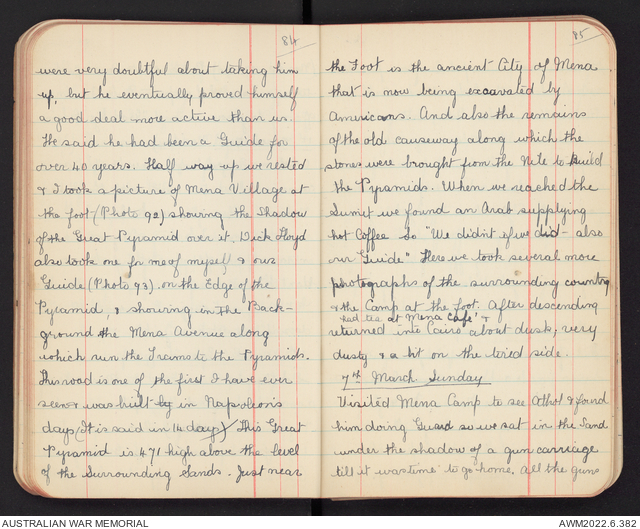 84
were very doubtful about taking him
up, but he eventually proved himself
a good deal more active than us.
He said he had been a Guide for
over 40 years. Half way up we rested
& I took a picture of Mena Village at
the foot (Photo 92) showing the Shadow
of the Great Pyramid over it. Dick Lloyd
also took one for me of myself & our
Guide (Photo 93) on the Edge of the
Pyramid, & showing in the Back-
ground the Mena Avenue along
which run the Trams to the Pyramids.
This road is one of the first I have ever
seen & was built by in Napoleons
days (It is said in 14 days) This Great
Pyramid is 471 high above the level
of the Surrounding Sands. Just near
85
the Foot is the ancient City of Mena
that is now being excavated by
Americans. And also the remains
of the old causeway along which the
stones were brought from the Nile to build
the Pyramids. When we reached the
Sumit we found an Arab supplying
hot Coffee So "We didn't if we did - also
our Guide" Here we took several more
photographs of the surrounding country
& the Camp at the foot. After descending
had tea at Mena Cafe &
returned into Cairo about dusk, very
dusty & a bit on the tired side.
7th March Sunday
Visited Mena Camp to see Athol & found
him doing Guard so we sat in the Sand
under the shadow of a gun carriage
till it was time to go home. All the guns
AUSTRALIAN WAR MEMORIAL
AWM2022.6.382